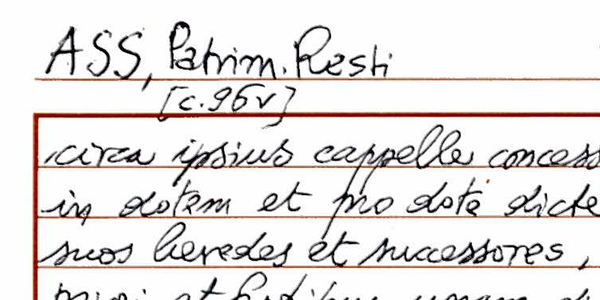 ASS, Patrim. Resti
[c. 96v]
circa ipsius cappelle concess
in dotem et pro dote dicte
suos heredes et successores,